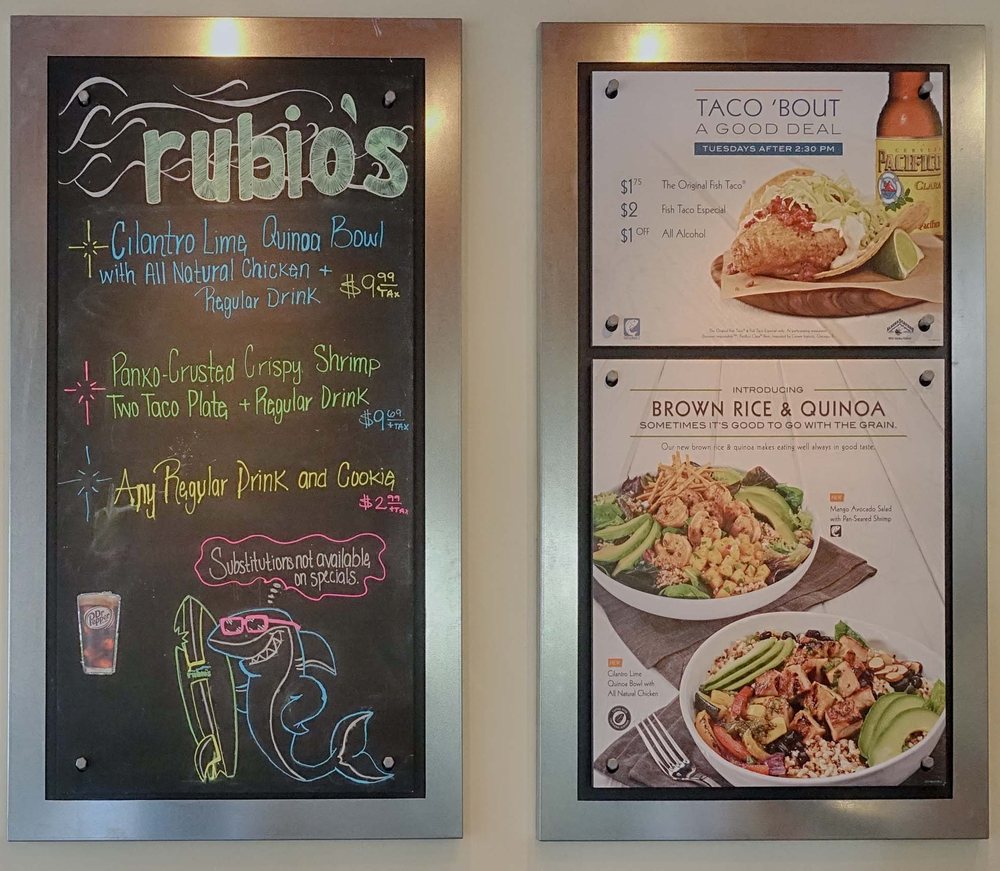 rubio's
Cilantro Lime Quinoa Bowl
with All Natural Chicken +
Regular Drink
$9.99
+TAX
Panko-Crusted Crispy Shrimp
Two Taco Plate + Regular Drink
$9.69
+TAX
Any Regular Drink and Cookie
$2.99
+TAX
Substitutions not available
on specials.
Dr Pepper
rubio's
TACO 'BOUT
A GOOD DEAL
TUESDAYS AFTER 2:30 PM
$1.75 The Original Fish Taco®
$2 Fish Taco Especial
$1 OFF All Alcohol
CERVEZA
PACIFICO
CLARA
Pacifico
INTRODUCING
BROWN RICE & QUINOA
SOMETIMES IT'S GOOD TO GO WITH THE GRAIN.
Our new brown rice & quinoa makes eating well always in good taste.
NEW
Mango Avocado Salad
with Pan-Seared Shrimp
NEW
Cilantro Lime
Quinoa Bowl with
All Natural Chicken